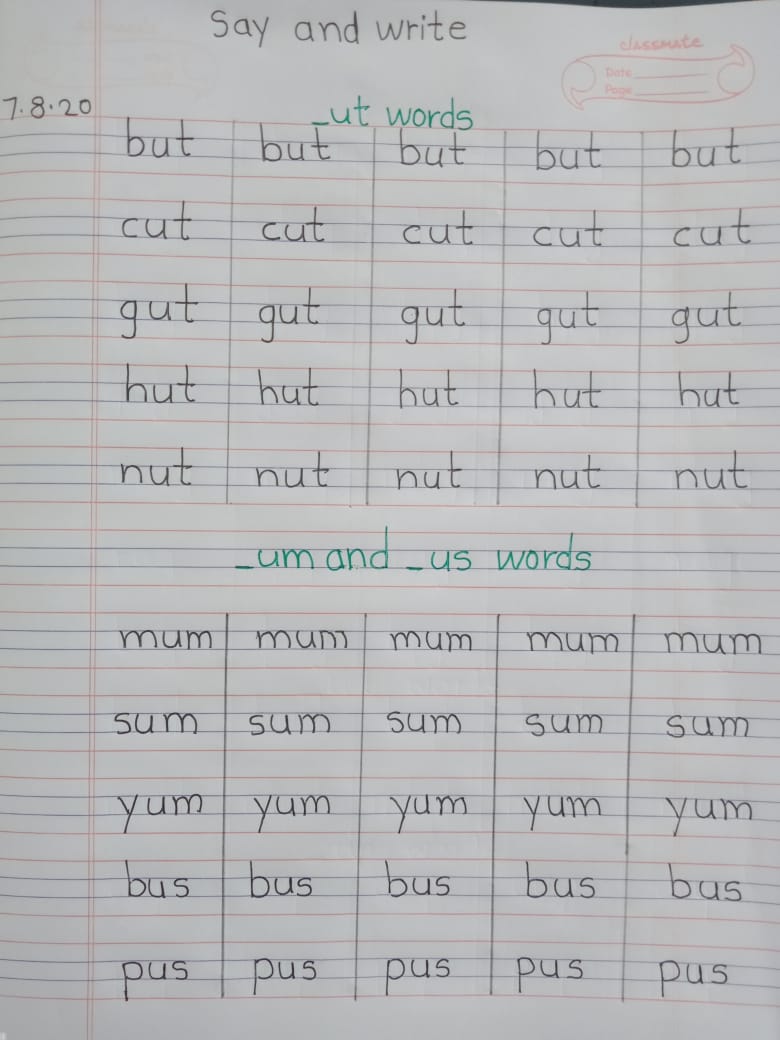 Say and write
classmate
Date
Page
7.8.20
_ut words
but but but but but
cut cut cut cut cut
gut gut gut gut gut
hut hut hut hut hut
nut nut nut nut nut
_um and _us words
mum mum mum mum mum
sum sum sum sum sum
yum yum yum yum yum
bus bus bus bus bus
pus pus pus pus pus